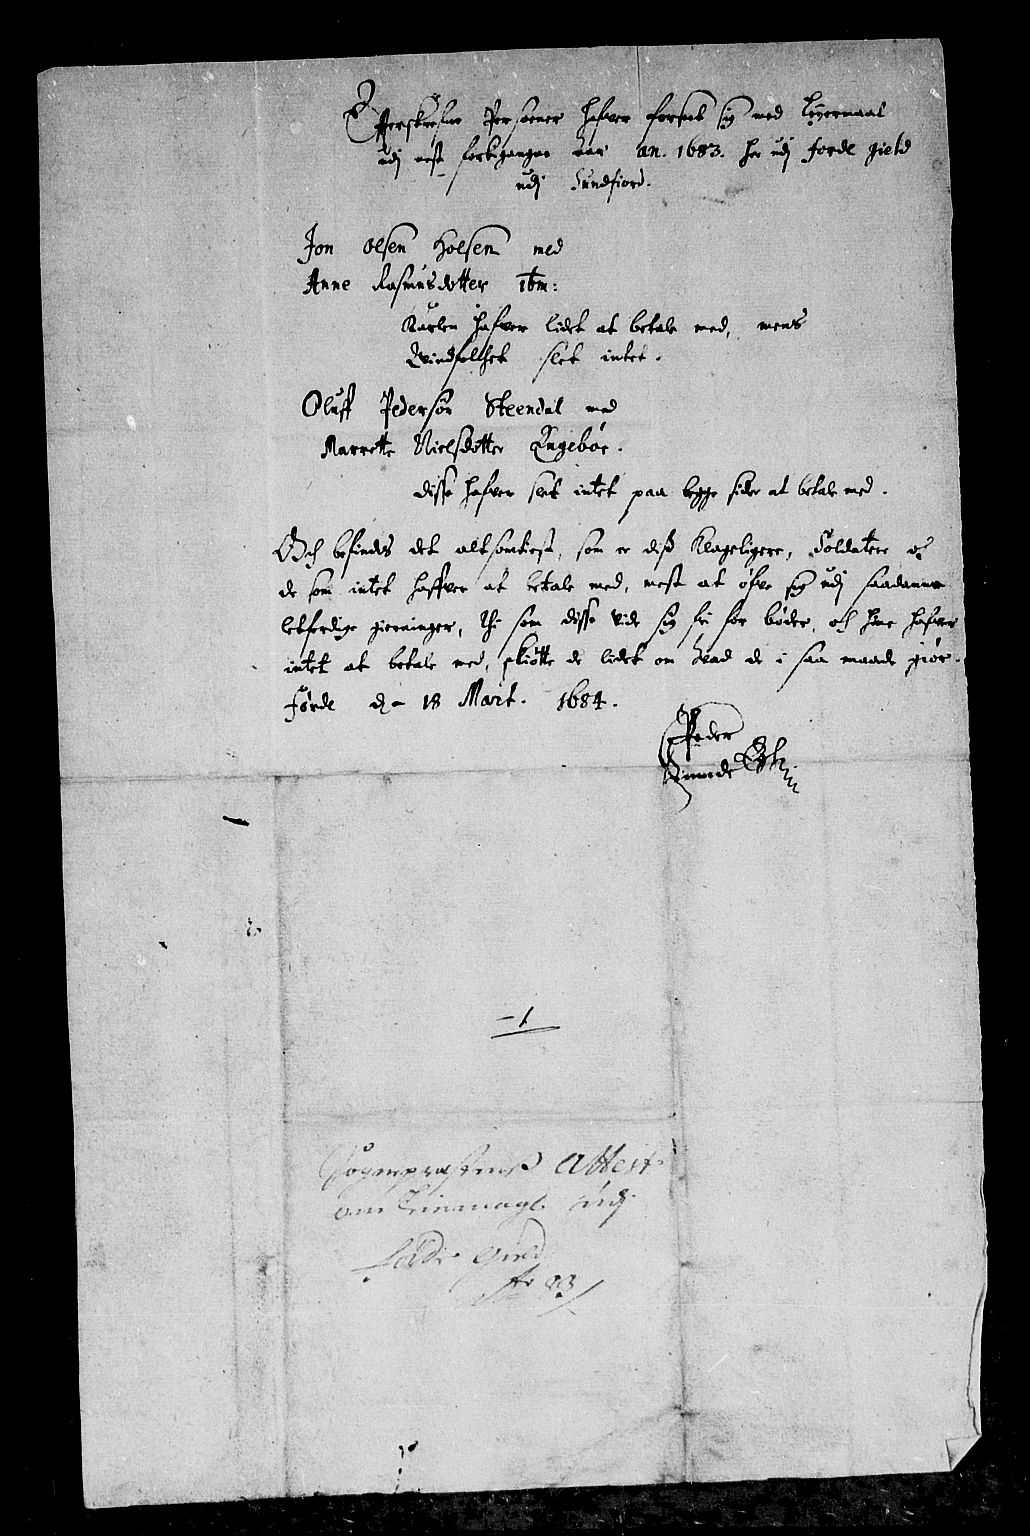 Efterskrefne Persooner hafver forseet sig med Leyermaal
udj nest forbigangne aar an. 1683. her udj Førde gield
udj Sundfiord.
Jon Olsen Holsen med
Anne Rasmusdotter ibm:
Karlen hafver lidet at betale med, mens
Qvindfolchet slet intet.
Oluff Pedersøn Steendal med
Marrette Nielsdotter Engebøe.
disse hafver slet intet paa begge sider at betale med.
Och befindes det altsomtiest, som er diß Klageligere, Soldatere oc
de som intet haffver at betale med, mest at øfve sig udj saadanne
letferdige gierninger, Thi som disse vide sig fri for bøder, och hine hafver
intet at betale med, skiøtte de lidet om hvad de i saa maade giør.
Førde d. 18 Mart. 1684.
Peder
Finnde
- 1
Sogneprestens Attest
om Leiermaal udj
Førde Gield